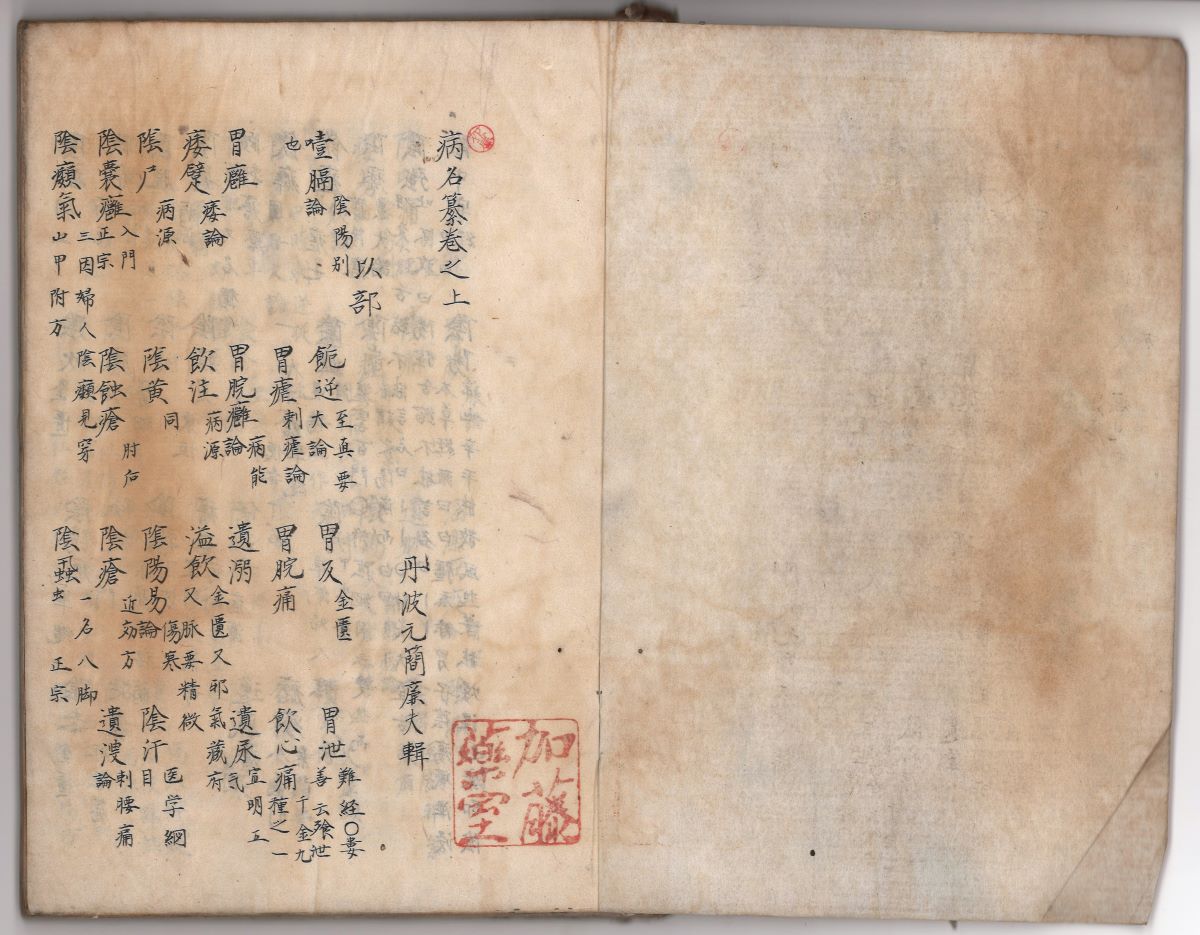 病名纂巻之上
丹波元簡廉夫輯
以部
噎膈 陰陽別論也 䭇逆 至真要大論 胃反 金匱 胃泄 難経○婁善云飱泄
胃瘧 刺瘧論 胃脘痛 飲心痛 千金九種之一
胃癰 胃脘癰 病能論 遺溺 遺尿 宣明五気
痿躄 痿論 飲注 病源 溢飲 金匱又邪氣蔵府又脉要精微
陰戸 病源 陰黄 同 陰陽易 傷寒論 陰汗 医学綱目
陰嚢癰 入門正宗 陰蝕瘡 肘后 陰瘡 近効方 遺溲 刺腰痛論
陰癩氣 三因婦人陰癩見穿山甲附方 陰虱 一名八脚虫 正宗
加藤
藥室